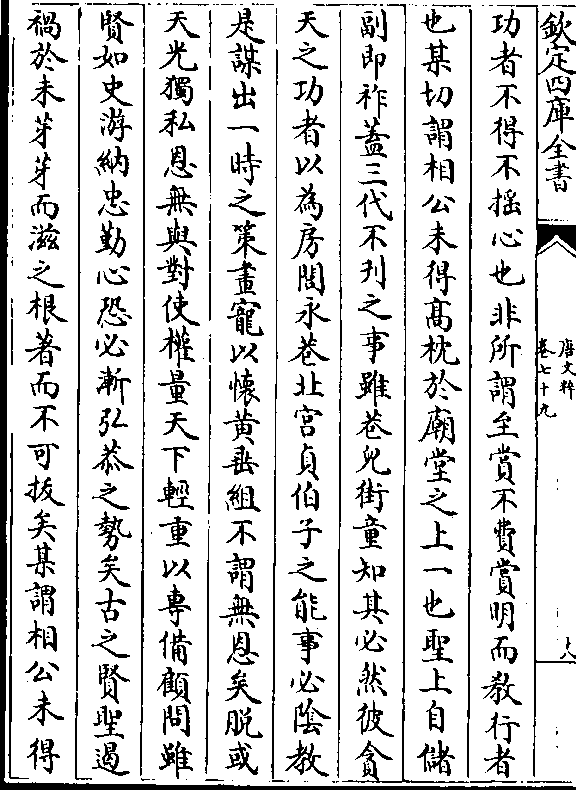 欽定四庫全書
唐文粹
卷七十九
十八
功者不得不揺心也非所謂至賞不費賞明而教行者
也某切謂相公未得髙枕於廟堂之上一也聖上自儲
副即祚葢三代不刋之事雖巷兒街童知其必然彼貪
天之功者以為房闥永巷北宫貞伯子之能事必隂教
是謀出一時之策畫寵以懷黄垂組不謂無恩矣脱或
天光獨私恩無與對使權量天下輕重以專備顧問雖
賢如史游納忠勤心恐必漸弘恭之勢矣古之賢聖遏
禍於未芽芽而滋之根著而不可拔矣某謂相公未得